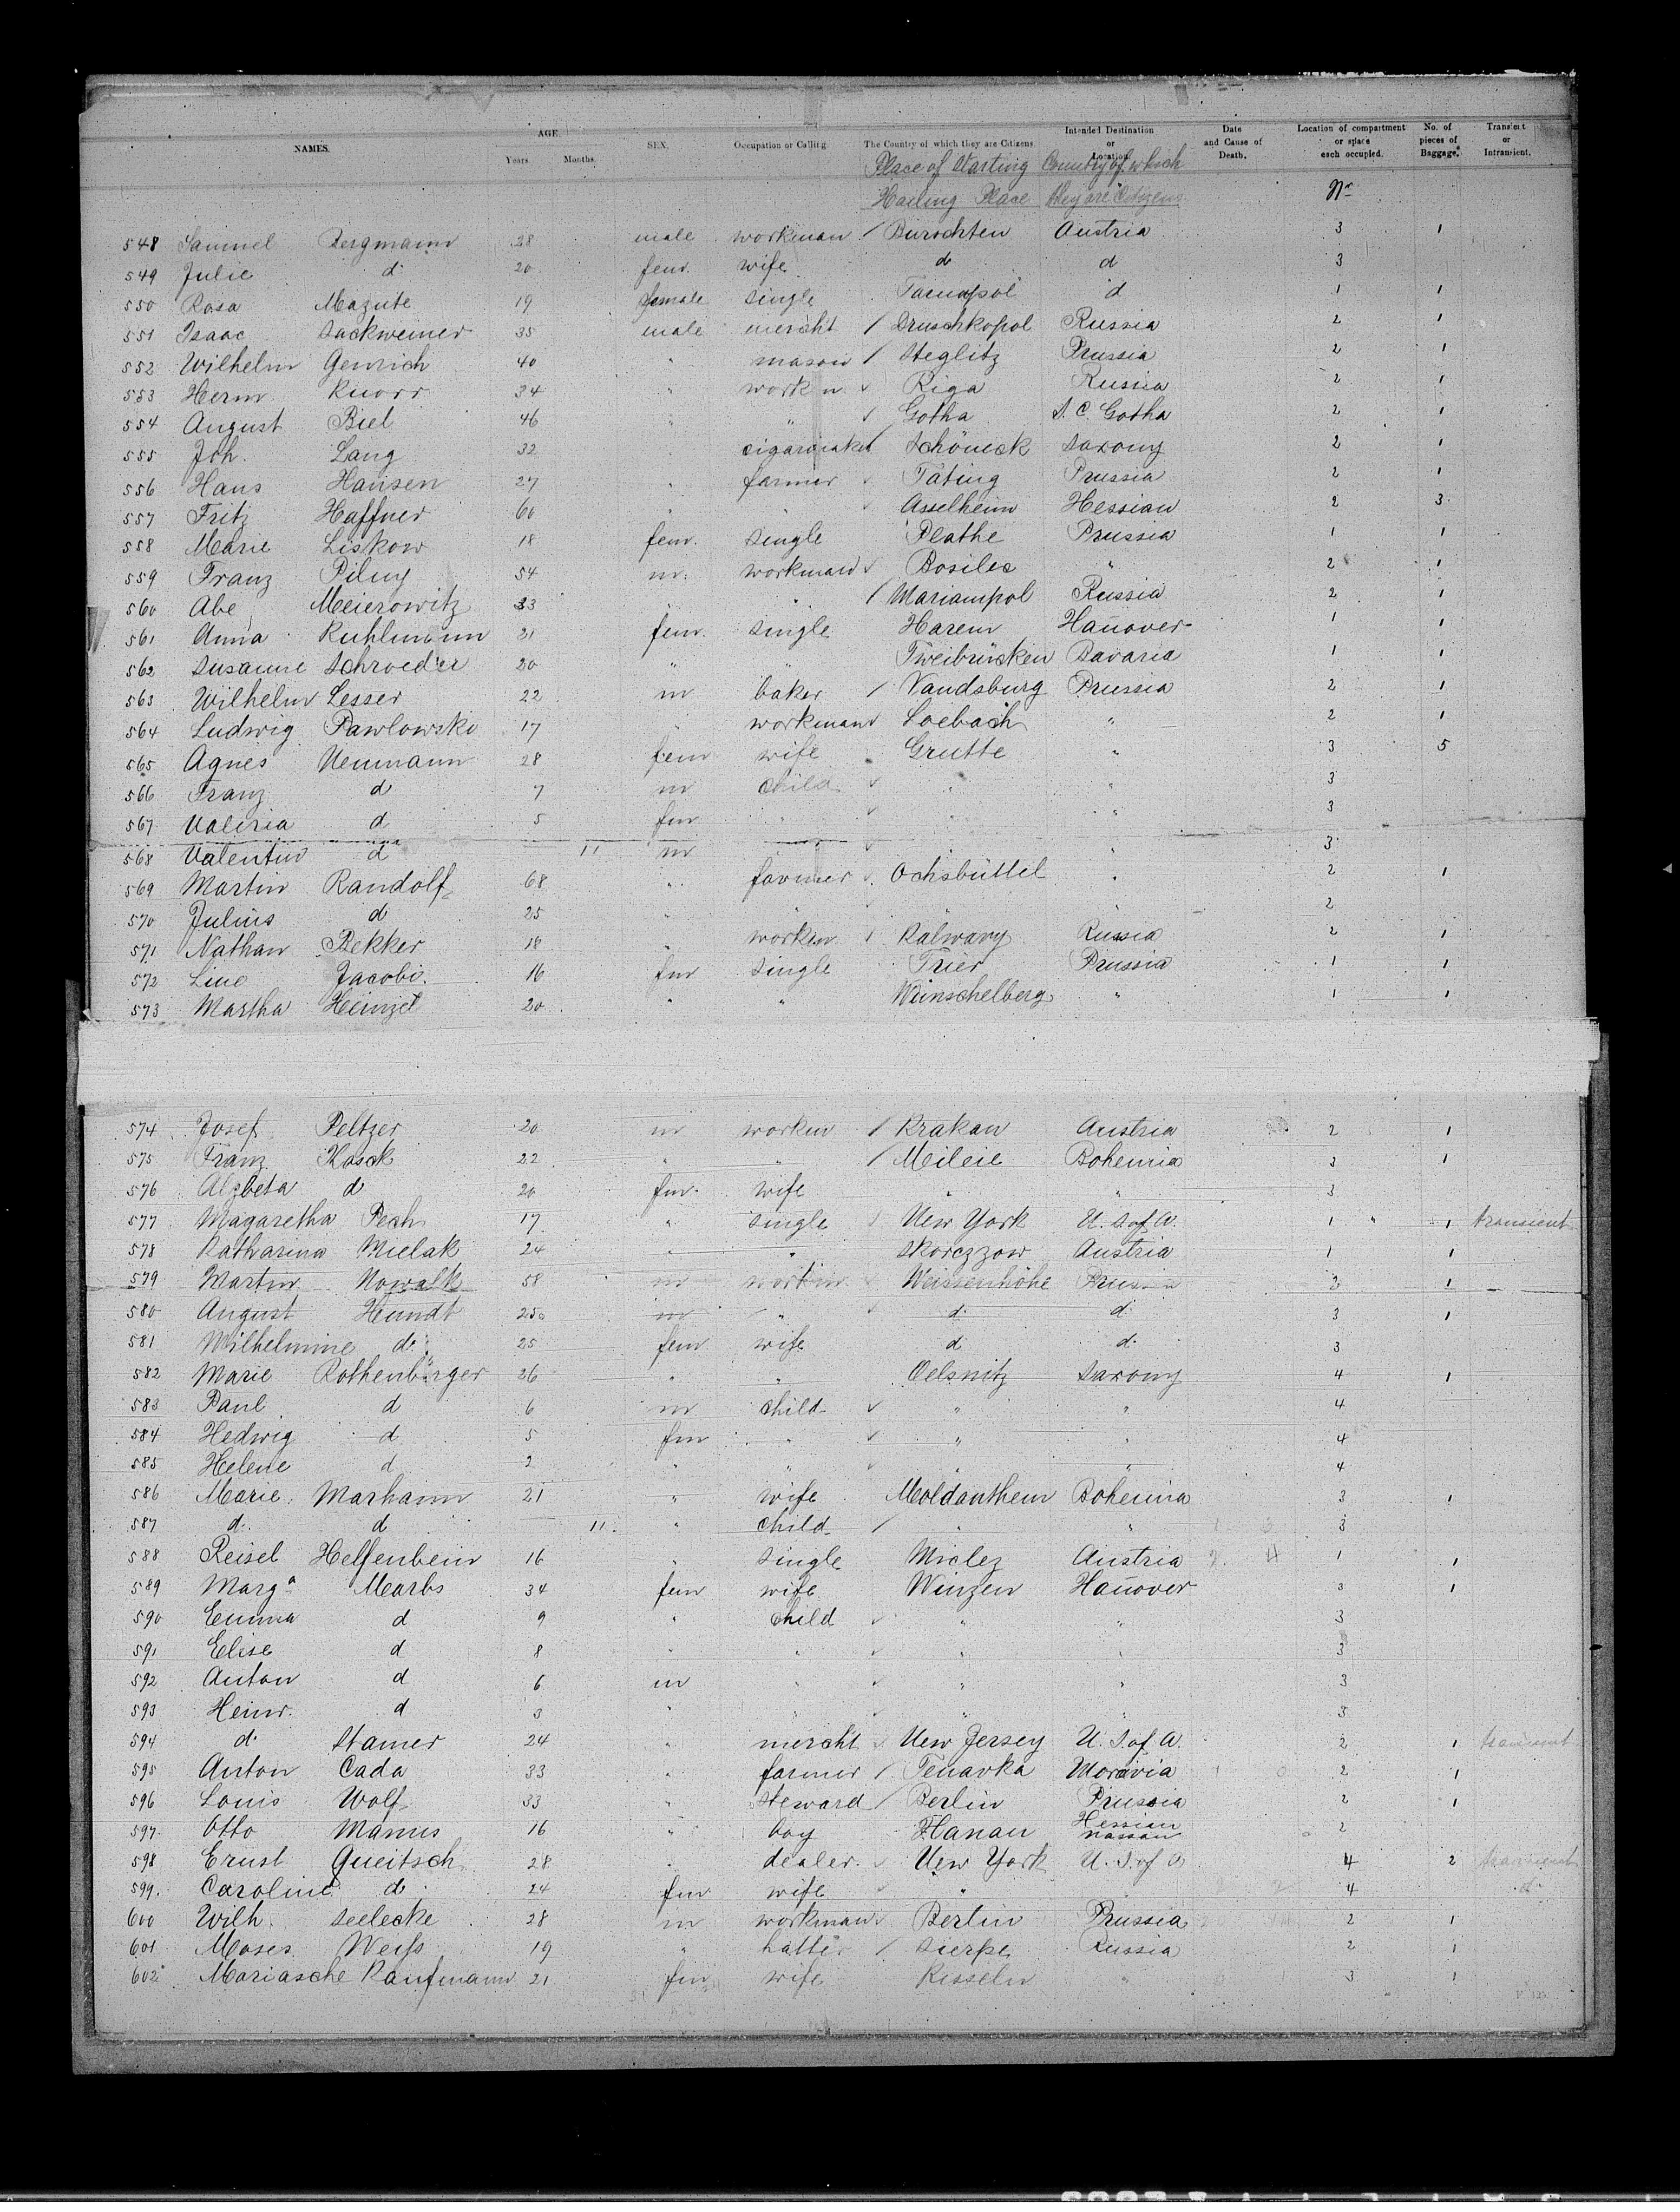 NAMES. AGE. Years. Months. SEX. Occupation or Calling The Country of which they are Citizens. Intended Destination or Location. Date and Cause of Death. Location of compartment or space each occupied. No. of pieces of Baggage. Transient or Intransient.
Place of Starting Country of which
Hailing Place they are Citizens No
548 Samuel Bergmann 28 male workman / Burschten Austria 3 1
549 Julie d 20 fem. wife d d 3
550 Rosa Mazute 19 female single Tarnopol d 1 1
551 Isaac Sackweiner 35 male mercht / Druschkopol Russia 2 1
552 Wilhelm Genrich 40 " mason / Steglitz Prussia 2 1
553 Herm Knorr 34 " workm ✓ Riga Russia 2 1
554 August Biel 46 " " ✓ Gotha S. C. Gotha 2 1
555 Joh. Lang 32 cigarmaker / Schöneck Saxony 2 1
556 Hans Hansen 27 " farmer ✓ Tating Prussia 2 1
557 Fritz Haffner 60 " " ✓ Asselheim Hessian 2 3
558 Marie Liskow 18 fem. single Plathe Prussia 1 1
559 Franz Pilny 54 m. workman ✓ Bosilec " 2 1
560 Abe Meierowitz 33 " " / Mariampol Russia 2 1
561 Anna Kuhlmann 21 fem. single Harem Hanover 1 1
562 Susanne Schroeder 20 " " Zweibrücken Bavaria 1 1
563 Wilhelm Lesser 22 m baker / Vandsburg Prussia 2 1
564 Ludwig Pawlowski 17 " workman ✓ Loebach " 2 1
565 Agnes Neumann 28 fem wife Grutte " 3 5
566 Franz d 7 m child ✓ " " 3
567 Valeria d 5 fm " ✓ " " 3
568 Valentin d 11 m " ✓ " " 3
569 Martin Randolf 68 " farmer ✓ Ochsbüttel " 2 1
570 Julius d 25 " " ✓ " " 2
571 Nathan Bekker 18 " workm / Kalwary Russia 2 1
572 Line Jacobi 16 fm single Trier Prussia 1 1
573 Martha Heinzel 20 " " Wünschelberg " 1 1
574 Josef Peltzer 20 m workm / Krakau Austria 2 1
575 Franz Kosck 22 " " / Meileie Bohemia 3 1
576 Alzbeta d 20 fm. wife " " 3
577 Magaretha Pech 17 " single ✓ New York U. S. of A. 1 1 transient
578 Katharina Mielak 24 " " Skorczzow Austria 1 1
579 Martin Nowalk 58 m workm ✓ Weissenhöhe Prussia 2 1
580 August Hundt 25 m " ✓ d d 3 1
581 Wilhelmine d 25 fem wife d d 3
582 Marie Rothenbürger 26 " " Oelsnitz Saxony 4 1
583 Paul d 6 m child ✓ " " 4
584 Hedwig d 5 fm " ✓ " " 4
585 Helene d 2 " " ✓ " " 4
586 Marie Marhann 21 " wife Moldauthein Bohemia 3 1
587 d. d 11. " child / " " 3
588 Reisel Helfenbein 16 " single Miclez Austria 1 1
589 Marga Marbs 34 fem wife Winzen Hanover 3 1
590 Emma d 9 " child ✓ " " 3
591 Elise d 8 " " ✓ " " 3
592 Anton d 6 m " ✓ " " 3
593 Heinr. d 3 " " ✓ " " 3
594 d. Stamer 24 " mercht ✓ New Jersey U. S. of A. 2 1 transient
595 Anton Cada 33 " farmer / Tenavka Moravia 2 1
596 Louis Wolf 33 " steward / Berlin Prussia 2 1
597 Otto Manns 16 " boy Hanau Hessian Nassau 2
598 Ernst Gueitsch 28 " dealer. ✓ New York U. S. of A 4 2 transient
599. Caroline d 24 fm wife ✓ " " 4 d.
600 Wilh. Seelecke 28 m workman ✓ Berlin Prussia 2 1
601 Moses Weiß 19 " hatter / Sierpe Russia 2 1
602 Mariasche Kaufmann 21 fm wife Risseln " 3 1